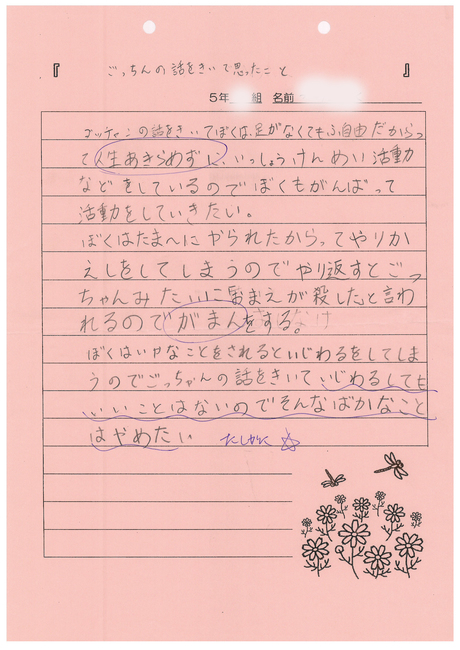 『 ごっちんの話をきいて思ったこと 』
5年 組 名前
ゴッチャンの話をきいてぼくは、足がなくてもふ自由だからっ
て人生あきらめずに、いっしょうけんめい活動
などをしているのでぼくもがんばって
活動をしていきたい。
ぼくはたまへにやられたからってやりか
えしをしてしまうのでやり返すとごっ
ちゃんみたいにお前が殺したと言わ
れるのでがまんをする。
ぼくはいやなことをされるといじわるをしてしま
うのでごっちゃんの話をきいていじわるしても
いいことはないのでそんなばかなこと
はやめたい たしかに